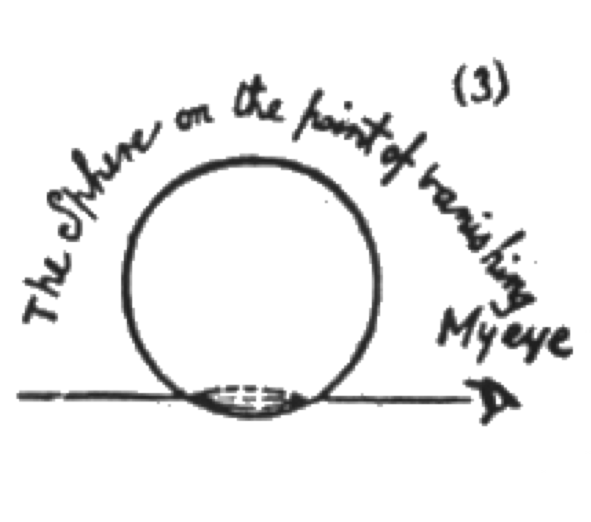 (3)
The Sphere on the point of vanishing
My eye